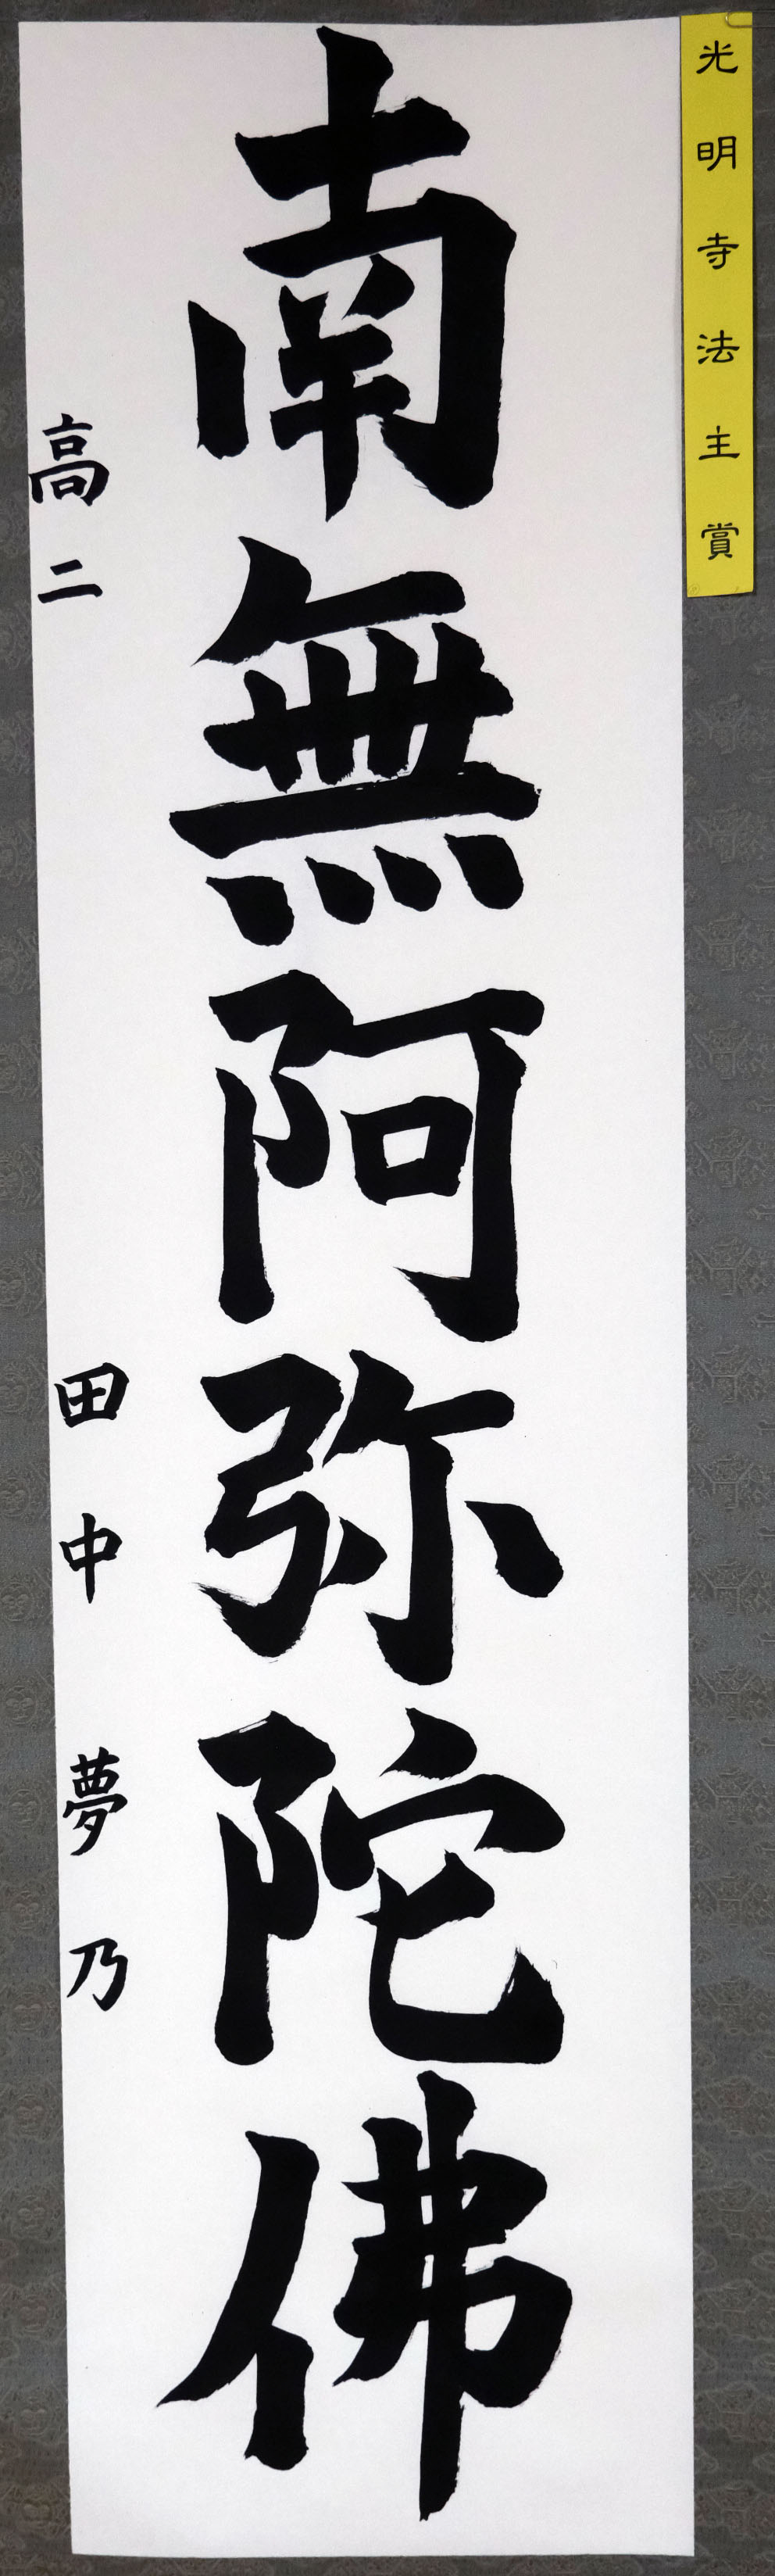 光明寺法主賞
南無阿弥陀佛
高二 田中夢乃